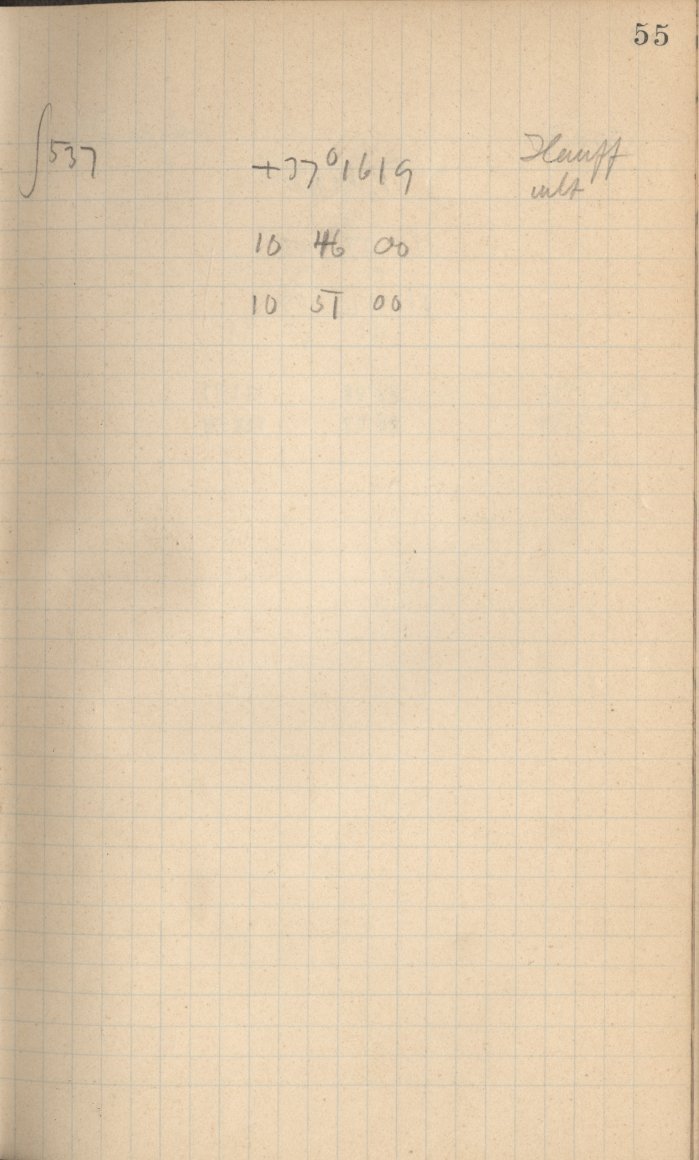 55
∫537 +37°1619 Hauff
10 46 00
10 51 00